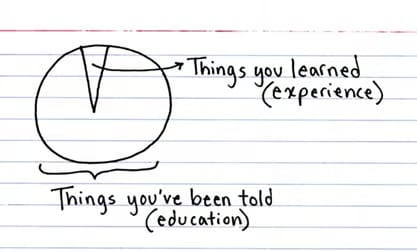 Things you learned
(experience)
Things you've been told
(education)